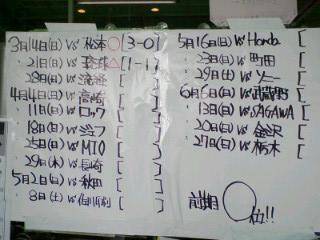 3月14日(日) VS 松本 ○ [3-0]
21日(日) VS 琉球 △ [1-1]
28日(日) VS [
4月4日(日) VS 高崎 [
11日(日) VS ロック [
18日(日) VS [
25日(日) VS MIO [
29日(木) VS 長崎 [
5月2日(日) VS 秋田 [
8日(土) VS 佐川印刷 [
5月16日(日) VS Honda [
23日(日) VS 町田 [
29日(土) VS ソニー [
6月6日(日) VS 武蔵野 [
13日(日) VS SAGAWA [
20日(日) VS 金沢 [
27日(日) VS 栃木 [
前期 ○位!!